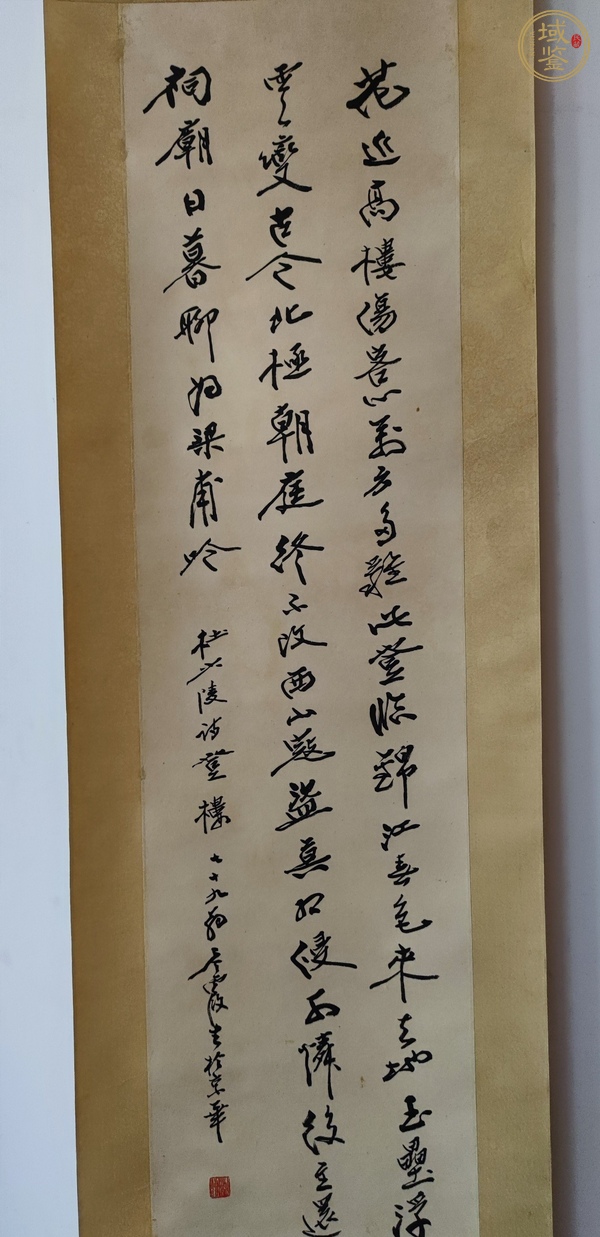 花近高樓傷客心萬方多難此登臨錦江春色來天地玉壘浮
雲變古今北極朝廷終不改西山寇盜莫相侵可憐後主還
祠廟日暮聊為梁甫吟
杜少陵詩登樓 七十九翁 書於京華
域鉴